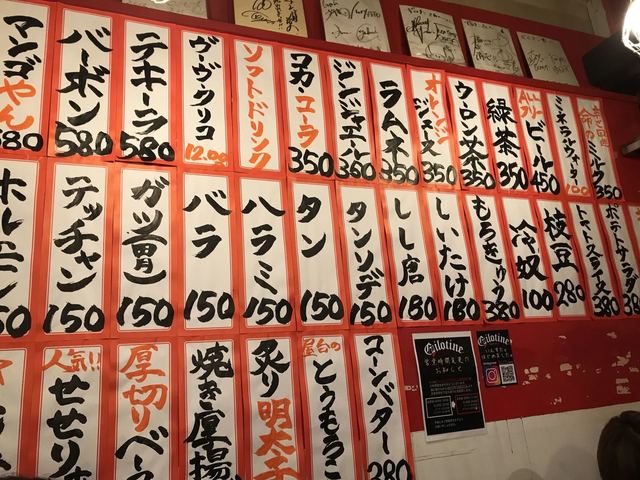 マンゴやん 680
バーボン 580
テキーラ 580
ヴーヴ・クリコ 12.000
ソフトドリンク
コカ・コーラ 350
ジンジャエール 350
ラムネ 350
オレンジジュース 350
ウーロン茶 350
緑茶 350
ALLフリービール 450
ミネラルウォーター 100
ミルク 350
ホルモン 150
テッチャン 150
ガツ(胃) 150
バラ 150
ハラミ 150
タン 150
タンソデ 150
しし唐 180
しいたけ 180
もろきゅう 380
冷奴 100
枝豆 280
トマトスライス 380
ポテトサラダ 380
人気!! せせり
厚切りベー
焼き厚揚
炙り明太子
屋台のとうもろこ
コーンバター 380
Gilotine
営業時間変更のお知らせ
Gilotine